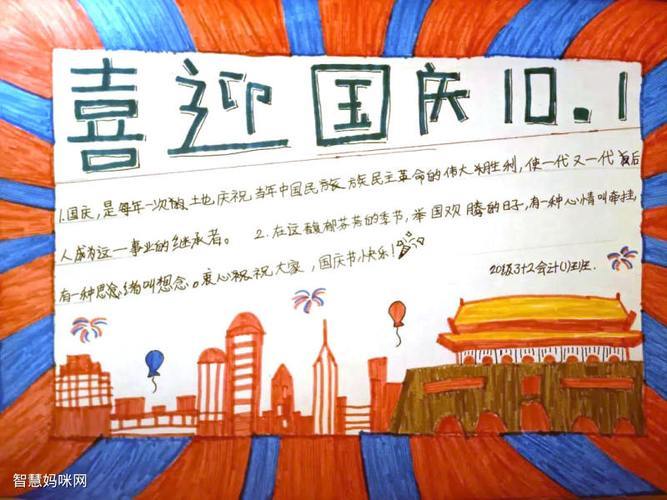 喜迎国庆10.1
1.国庆,是每年一次的,土地庆祝,当年中国民族 族民主革命的伟大 胜利,使一代又一代 后
人成为这一事业的继承者。 2.在这馥郁芬芳的季节,举国欢腾的日子,有一种心情叫牵挂
有一种思绪叫想念。衷心祝祝大家,国庆节快乐!
20级3+2会计(1)班班.
智慧妈咪网